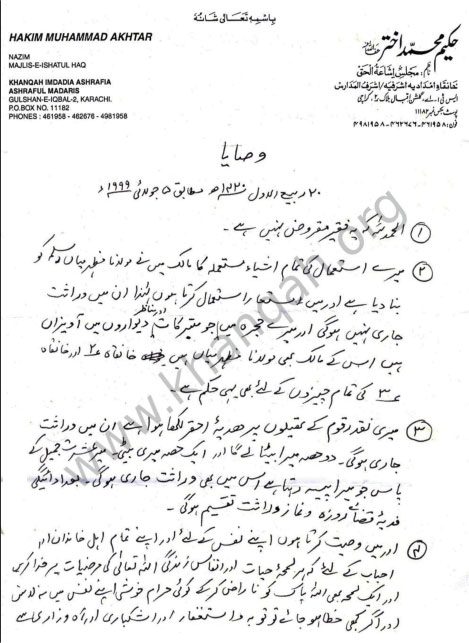 باسمہ تعالیٰ شانہ
HAKIM MUHAMMAD AKHTAR
NAZIM
MAJLIS-E-ISHATUL HAQ
KHANQAH IMDADIA ASHRAFIA
ASHRAFUL MADARIS
GULSHAN-E-IQBAL-2, KARACHI.
P.O.BOX NO. 11182
PHONES : 461958 - 462676 - 4981958
حکیم محمد اختر
ناظم: مجلس اشاعۃ الحق
خانقاہ امدادیہ اشرفیہ / اشرف المدارس
گلشن اقبال ۲، کراچی
پوسٹ بکس نمبر ۱۱۱۸۲
فون: ۴۶۱۹۵۸ - ۴۶۲۶۷۶ - ۴۹۸۱۹۵۸
وصایا
۲۰ ربیع الاول ۱۴۲۰ھ مطابق ۵ جولائی ۱۹۹۹ء
۱ الحمد للہ کہ یہ فقیر مقروض نہیں ہے۔
۲ میرے استعمال کی تمام اشیاء مستعملہ کا مالک میں نے مولانا مظہر میاں سلمہ کو
بنا دیا ہے اور میں مستعار استعمال کرتا ہوں لہٰذا ان میں وراثت
جاری نہیں ہوگی اور میرے حجرہ میں جو متبرکات دیواروں میں آویزاں
ہیں اس کے مالک بھی مولانا مظہر میاں ہیں خانقاہ ۲ اور خانقاہ
۳ کی تمام چیزوں کے لئے بھی یہی حکم ہے۔
۳ میری نقد رقوم کے تھیلوں پر ھدیۂ احقر لکھا ہوا ہے ان میں وراثت
جاری ہوگی۔ دو حصہ میرا بیٹا لے گا اور ایک حصہ میری بیٹی۔ عشرت جمیل کے
پاس جو میرا پیسہ رہتا ہے اس میں بھی وراثت جاری ہوگی۔ بعد ادائیگی
فدیۂ قضائے روزہ و نماز وراثت تقسیم ہوگی۔
۴ اور میں وصیت کرتا ہوں اپنے نفس کے لئے اور اپنے تمام اہل خاندان اور
احباب کے لئے کہ ہر لمحۂ حیات اور انفاس زندگی اللہ تعالیٰ کی مرضیات پر فدا کریں
اور ایک لمحہ بھی اللہ پاک کو ناراض کرکے کوئی حرام خوشی اپنے نفس میں نہ لائیں
اور اگر کبھی خطا ہو جائے تو توبہ و استغفار اور اشکباری اور آہ و زاری سے
www.khanqah.org